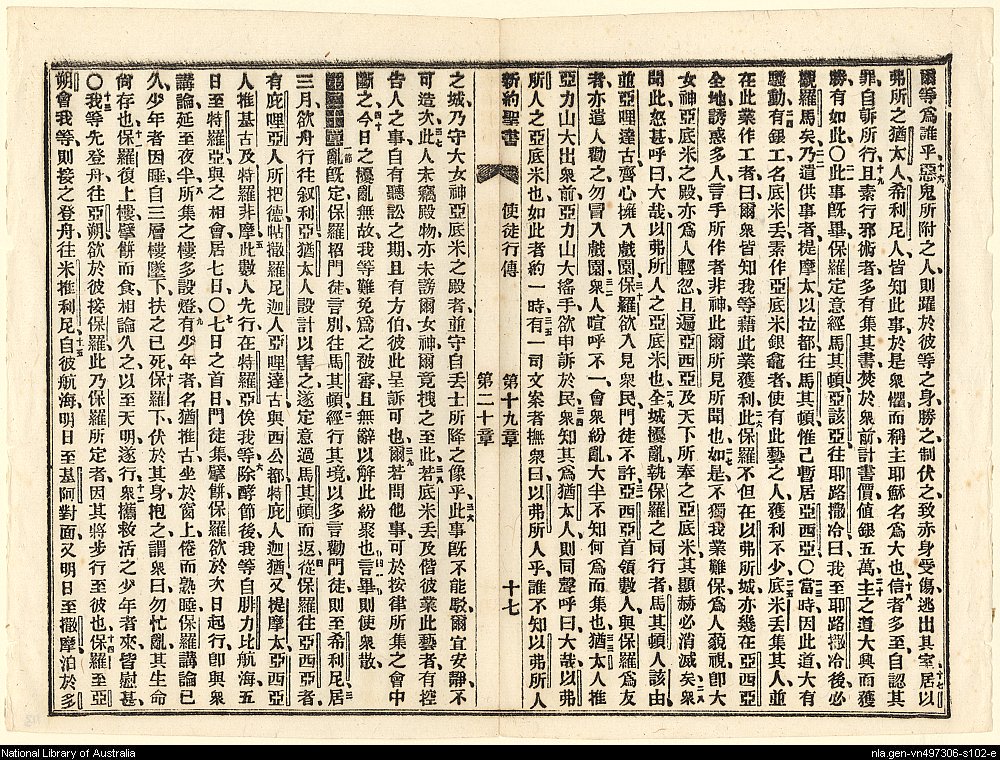 爾等爲誰乎惡鬼所附之人則躍於彼等之身勝之制伏之致赤身受傷逃出其室居以
弗所之猶太人希利尼人皆知此事於是衆懼而稱主耶穌名爲大也信者多至自認其
罪自訴所行且素行邪術者多有集其書焚於衆前計書價値銀五萬主之道大興而獲
勝有如此〇此事旣畢保羅定意經馬其頓亞該亞往耶路撒冷曰我至耶路撒冷後必
觀羅馬矣乃遣供事者提摩太以拉都往馬其頓惟己暫居亞西亞〇當時因此道大有
騷動有銀工名底米丢素作亞底米銀龕者使有此藝之人獲利不少底米丢集其人並
在此業作工者曰爾衆皆知我等藉此業獲利此保羅不但在以弗所城亦幾在亞西亞
全地誘惑多人言手所作者非神此爾所見所聞也如是不獨我業難保爲人藐視卽大
女神亞底米之殿亦爲人輕忽且遍亞西亞及天下所奉之亞底米其顯赫必消滅矣衆
聞此忽甚呼曰大哉以弗所人之亞底米也全城擾亂執保羅之同行者馬其頓人該由
並亞哩達古齊心擁入戲園保羅欲入見衆民門徒不許亞西亞首領數人與保羅爲友
者亦遣人勸之勿冒入戲園衆人喧呼不一會衆紛亂大半不知何爲而集也猶太人推
亞力山大出衆前亞力山大搖手欲申訴於民衆知其爲猶太人則同聲呼曰大哉以弗
所人之亞底米也如此者約一時有一司文案者撫衆曰以弗所人乎誰不知以弗所人
新約聖書 使徒行傳 第十九章 第二十章 十七
之城乃守大女神亞底米之殿者並守自丢士所降之像乎此事旣不能駁爾宜安靜不
可造次此人未竊殿物亦未謗爾女神爾竟拽之至此若底米丢及偕彼業此藝者有控
告人之事自有聽訟之期且有方伯彼此呈訴可也爾若問他事可於按律所集之會中
斷之今日之擾亂無故我等難免爲之被審且無辭以解此紛聚也言畢則使衆散
亂旣定保羅招門徒言別往馬其頓經行其境以多言勸門徒則至希利尼居
三月欲舟行往叙利亞猶太人設計以害之遂定意過馬其頓而返從保羅往亞西亞者
有庇哩亞人所把德帖撒羅尼迦人亞哩達古與西公都特庇人迦猶又提摩太亞西亞
人推基古及特羅非摩此數人先行在特羅亞俟我等除酵節後我等自腓力比航海五
日至特羅亞與之相會居七日〇七日之首日門徒集擘餅保羅欲於次日起行卽與衆
講論延至夜半所集之樓多設燈有少年者名猶推古坐於窗上倦而熟睡保羅講論已
久少年者因睡自三層樓墜下扶之已死保羅下伏於其身抱之謂衆曰勿忙亂其生命
尙存也保羅復上樓擘餅而食相論久之以至天明遂行衆攜救活之少年者來皆慰甚
〇我等先登舟往亞朔欲於彼接保羅此乃保羅所定者因其將步行至彼也保羅至亞
朔會我等則接之登舟往米推利尼自彼航海明日至基阿對面又明日至撒摩泊於多
National Library of Australia
nla.gen-vn497306-s102-e